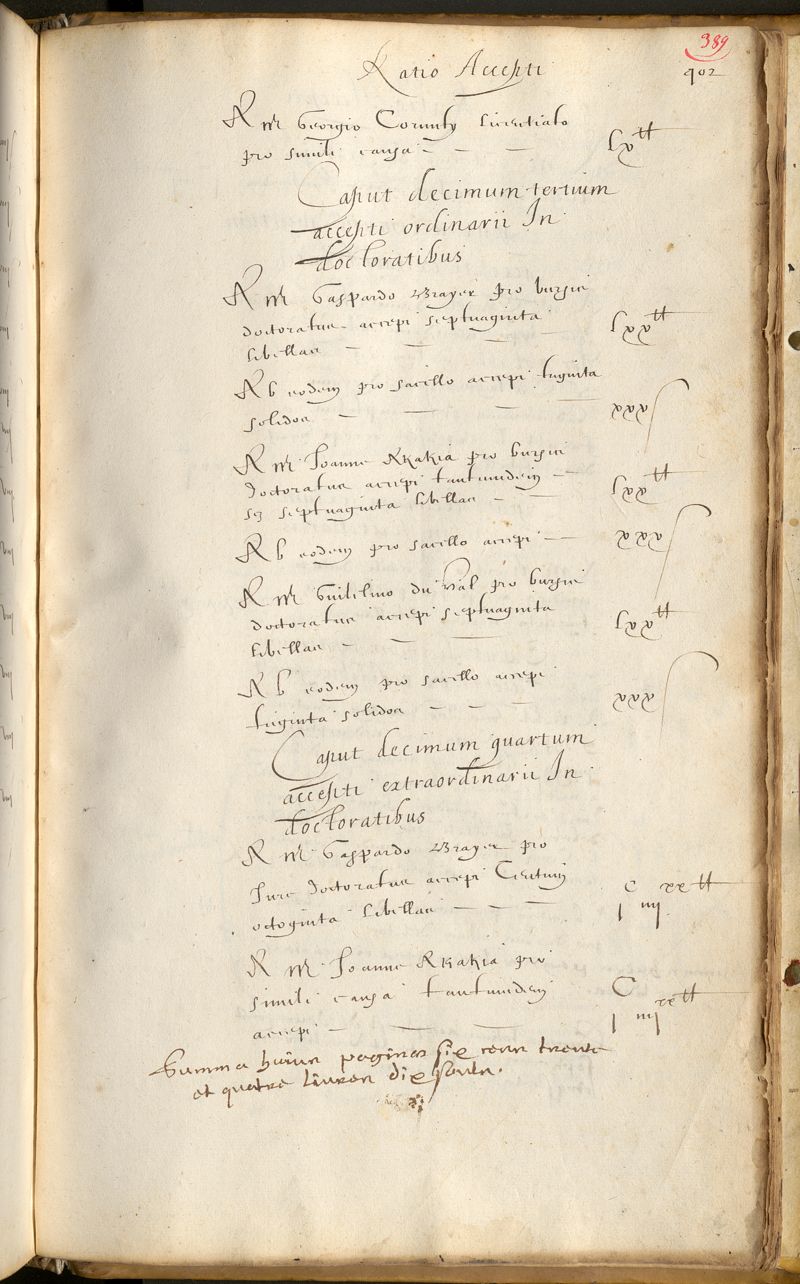 389
Ratio Accepti
402
A M Georgio Cornuty licentiato
pro simili causa lx tt
Caput decimum tertium
accepti ordinarii In
doctoratibus
A M Gaspardo Brayer pro bursis
doctoratus accepi septuaginta
libellas lxx tt
Ab eodem pro sacello accepi triginta
solidos xxx s
A M Joanne Akakia pro bursis
doctoratus accepi tantumdem
septuaginta libellas lxx tt
Ab eodem pro sacello accepi xxx s
A M Guilelmo du Val pro bursis
doctoratus accepi septuaginta
libellas lxx tt
Ab eodem pro sacello accepi
triginta solidos xxx s
Caput decimum quartum
accepti extraordinarii In
doctoratibus
A M Gaspardo Brayer pro
Jure doctoratus accepi Centum
octoginta libellas C iiii xx tt
A M Joanne Akakia pro
simili causa tantumdem
accepi C iiii xx tt
Summa huius paginas six cens trente
et quatre livres dix soulz.